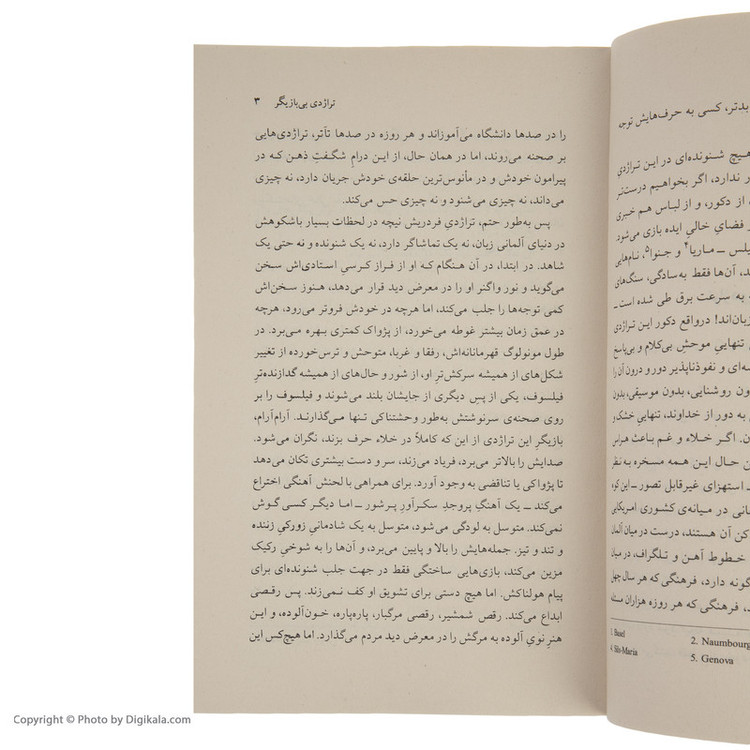 تراژدی بی‌بازیگر ۳
را در صدها دانشگاه می‌آموزاند و هر روزه در صدها تآتر، تراژدی‌هایی
بر صحنه می‌روند، اما در همان حال، از این درامِ شگفتِ ذهن که در
پیرامون خودش و در مأنوس‌ترین حلقه‌ی خودش جریان دارد، نه چیزی
می‌داند، نه چیزی می‌شنود و نه چیزی حس می‌کند.
پس به‌طور حتم، تراژدیِ فردریش نیچه در لحظات بسیار باشکوهش
در دنیای آلمانی زبان، نه یک تماشاگر دارد، نه یک شنونده و نه حتی یک
شاهد. در ابتدا، در آن هنگام که او از فراز کرسیِ استادی‌اش سخن
می‌گوید و نور واگنر او را در معرض دید قرار می‌دهد، هنوز سخن‌اش
کمی توجه‌ها را جلب می‌کند، اما هرچه در خودش فروتر می‌رود، هرچه
در عمق زمان بیشتر غوطه می‌خورد، از پژواک کمتری بهره می‌برد. در
طول مونولوگ قهرمانانه‌اش، رفقا و غربا، متوحش و ترس‌خورده از تغییر
شکل‌های از همیشه سرکش‌ترِ او، از شور و حال‌های از همیشه گدازنده‌ترِ
فیلسوف، یکی از پسِ دیگری از جایشان بلند می‌شوند و فیلسوف را بر
روی صحنه‌ی سرنوشتش به‌طور وحشتناکی تنها می‌گذارند. آرام‌آرام،
بازیگرِ این تراژدی از این که کاملاً در خلاء حرف بزند، نگران می‌شود.
صدایش را بالاتر می‌برد، فریاد می‌زند، سر و دست بیشتری تکان می‌دهد
تا پژواکی یا تناقضی به وجود آورد. برای همراهی با لحنش آهنگی اختراع
می‌کند ـ یک آهنگِ پروجدِ سکرآورِ پرشور ـ اما دیگر کسی گوش
نمی‌کند. متوسل به لودگی می‌شود، متوسل به یک شادمانیِ زورکیِ زننده
و تند و تیز. جمله‌هایش را بالا و پایین می‌برد، و آن‌ها را به شوخیِ رکیک
مزین می‌کند، بازی‌هایی ساختگی فقط در جهت جلب شنونده‌ای برای
پیام هولناکش. اما هیچ دستی برای تشویق او کف نمی‌زند. پس رقصی
ابداع می‌کند. رقص شمشیر، رقصی مرگبار، پاره‌پاره، خون‌آلوده، و این
هنرِ نویِ آلوده به مرگش را در معرض دید مردم می‌گذارد. اما هیچ‌کس این
بدتر، کسی به حرف‌هایش توجه
هیچ شنونده‌ای در این تراژدیِ
ندارد، اگر بخواهیم درست‌تر
از دکور، و از لباس هم خبری
فضایِ خالیِ ایده بازی می‌شود
ـ ماریا۴ و جنوا۵، نام‌هایی
آن‌ها فقط به‌سادگی، سنگ‌های
به سرعت برق طی شده است ـ
زبان‌اند! درواقع دکور این تراژدی
تنهاییِ موحشِ بی‌کلام و بی‌پاسخ
و نفوذناپذیر دور و درون آن را
روشنایی، بدون موسیقی، بدون
به دور از خداوند، تنهاییِ خشک و
اگر خلاء و غم باعث هراس
حال این همه مسخره به نظر
ـ استهزای غیرقابل تصور ـ این که
در میانه‌ی کشوری امریکایی
کن آن هستند، درست در میان آلمان
خطوط آهن و تلگراف، در میان
گونه دارد، فرهنگی که هر سال چهل
فرهنگی که هر روزه هزاران مسئله
1. Basel 2. Naumbourg
4. Sils-Maria 5. Genova
Copyright © Photo by Digikala.com